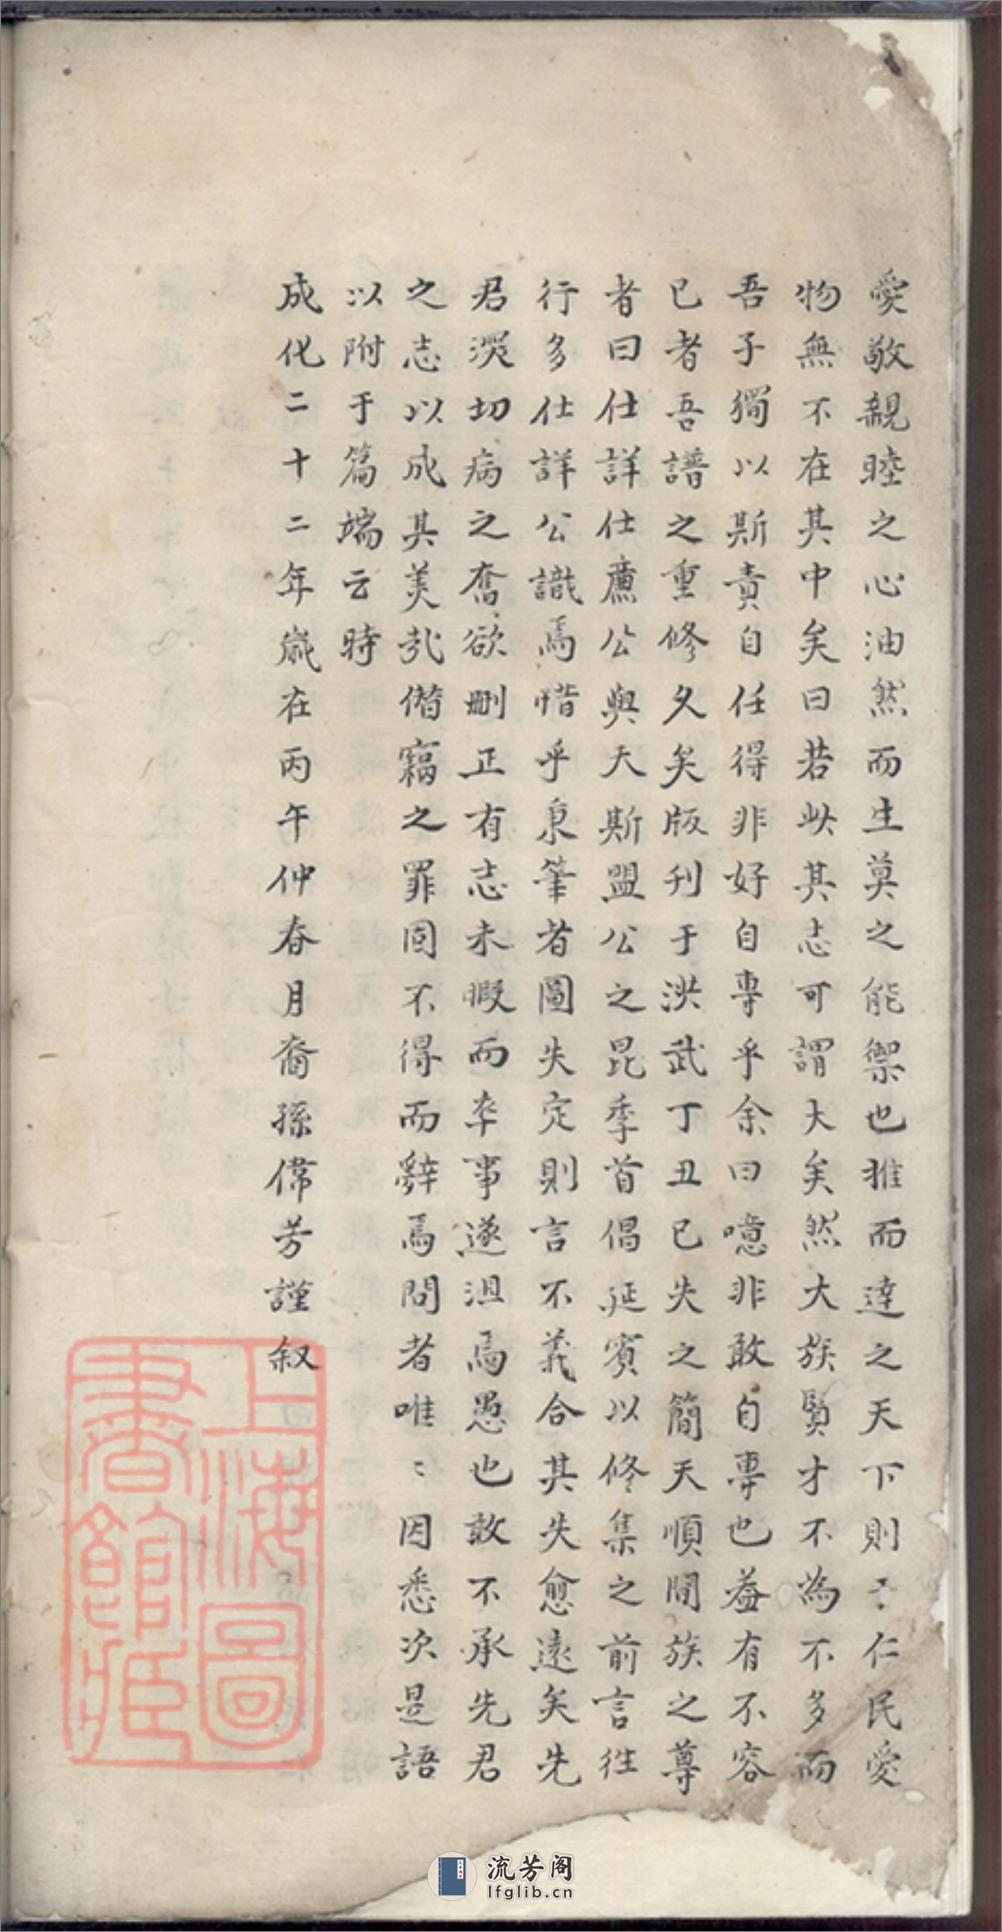 愛敬親睦之心油然而生莫之能禦也推而達之天下則〻仁民愛
物無不在其中矣曰若此其志可謂大矣然大族賢才不為不多而
吾子獨以斯責自任得非好自專乎余曰噫非敢自專也葢有不容
已者吾譜之重修久矣版刋于洪武丁丑已失之簡天順間族之尊
者曰仕詳仕廌公與天斯盟公之昆季首倡延賓以修集之前言徃
行多仕詳公識焉惜乎秉筆者圖失定則言不義合其失愈遠矣先
君深切病之奮欲刪正有志未暇而卒事遂沮焉愚也敢不承先君
之志以成其美㢤僭竊之罪固不得而辭焉問者唯〻因悉次是語
以附于篇端云時
成化二十二年歲在丙午仲春月裔孫偉芳謹叙
上海圖
書館藏
流芳阁
lfglib.cn